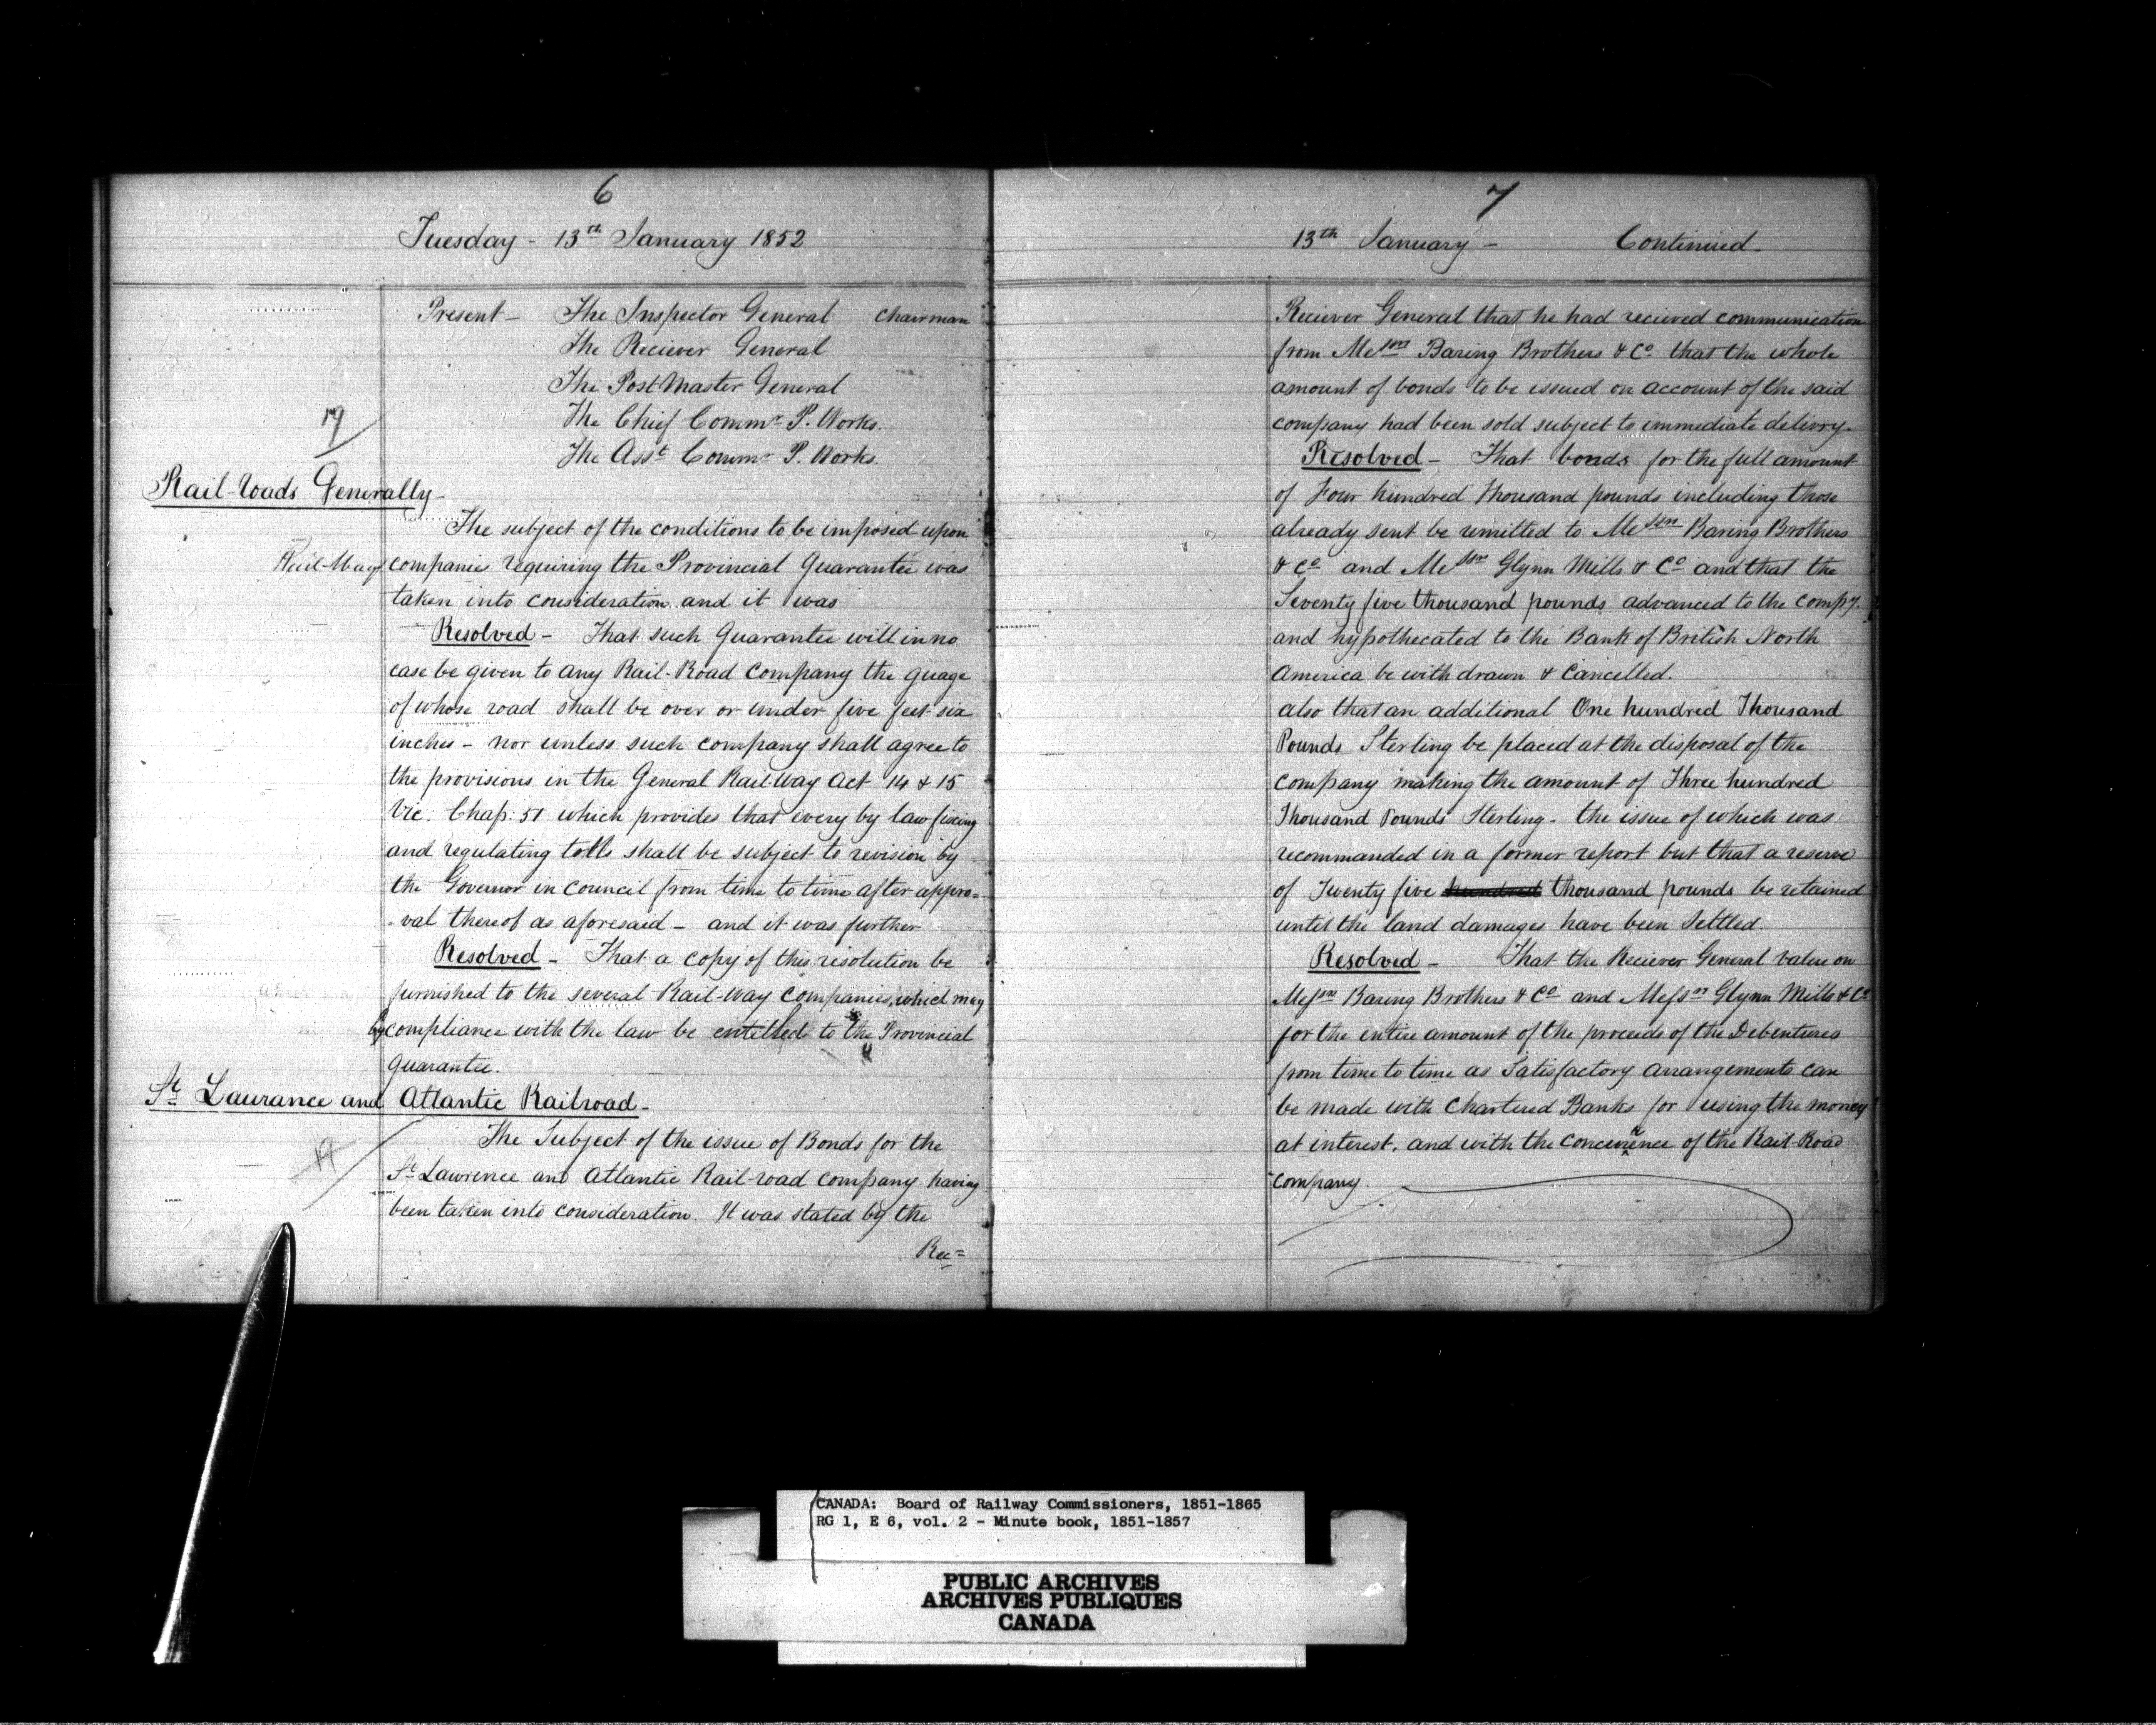 6
Tuesday - 13th January 1852
Present - The Inspector General Chairman
The Reciever General
The Post Master General
The Chief Commr P. Works.
The Asst Commr P. Works.
Rail-roads Generally -
The subject of the conditions to be imposed upon
Rail-Way companies requiring the Provincial Guarantee was
taken into consideration and it was
Resolved - That such Guarantee will in no
case be given to any Rail-Road Company the guage
of whose road shall be over or under five feet six
inches - nor unless such company shall agree to
the provisions in the General Rail-Way Act 14 & 15
Vic: Chap: 51 which provides that every by law fixing
and regulating tolls shall be subject to revision by
the Governor in Council from time to time after appro=
-val thereof as aforesaid - and it was further
Resolved - That a copy of this resolution be
furnished to the several Rail-way Companies, which may
by compliance with the law be entitled to the Provincial
Guarantee.
St Laurance and Atlantic Railroad -
The Subject of the issue of Bonds for the
St Lawrence and Atlantic Rail-road company having
been taken into consideration. It was stated by the
Rec=
7
13th January - Continued.
Reciever General that he had recieved communication
from Messrs Baring Brothers & Co that the whole
amount of bonds to be issued on account of the said
company had been sold subject to immediate delivry.
Resolved - That bonds for the full amount
of Four hundred Thousand pounds including those
already sent be remitted to Messrs Baring Brothers
& Co and Messrs Glynn Mills & Co and that the
Seventy five thousand pounds advanced to the Compy.
and hypothecated to the Bank of British North
America be with drawn & Cancelled.
also that an additional One hundred Thousand
Pounds Sterling be placed at the disposal of the
Company making the amount of Three hundred
Thousand Pounds Sterling - the issue of which was
recommanded in a former report but that a reserve
of Twenty five hundred thousand pounds be retained
until the land damages have been Settled.
Resolved - That the Reciever General value on
Messrs Baring Brothers & Co and Messrs Glynn Mills & Co
for the entire amount of the proceeds of the Debentures
from time to time as Satisfactory arrangements can
be made with Chartered Banks for using the money
at interest, and with the concurrence of the Rail-Road
Company.
CANADA: Board of Railway Commissioners, 1851-1865
RG 1, E 6, vol. 2 - Minute book, 1851-1857
PUBLIC ARCHIVES
ARCHIVES PUBLIQUES
CANADA